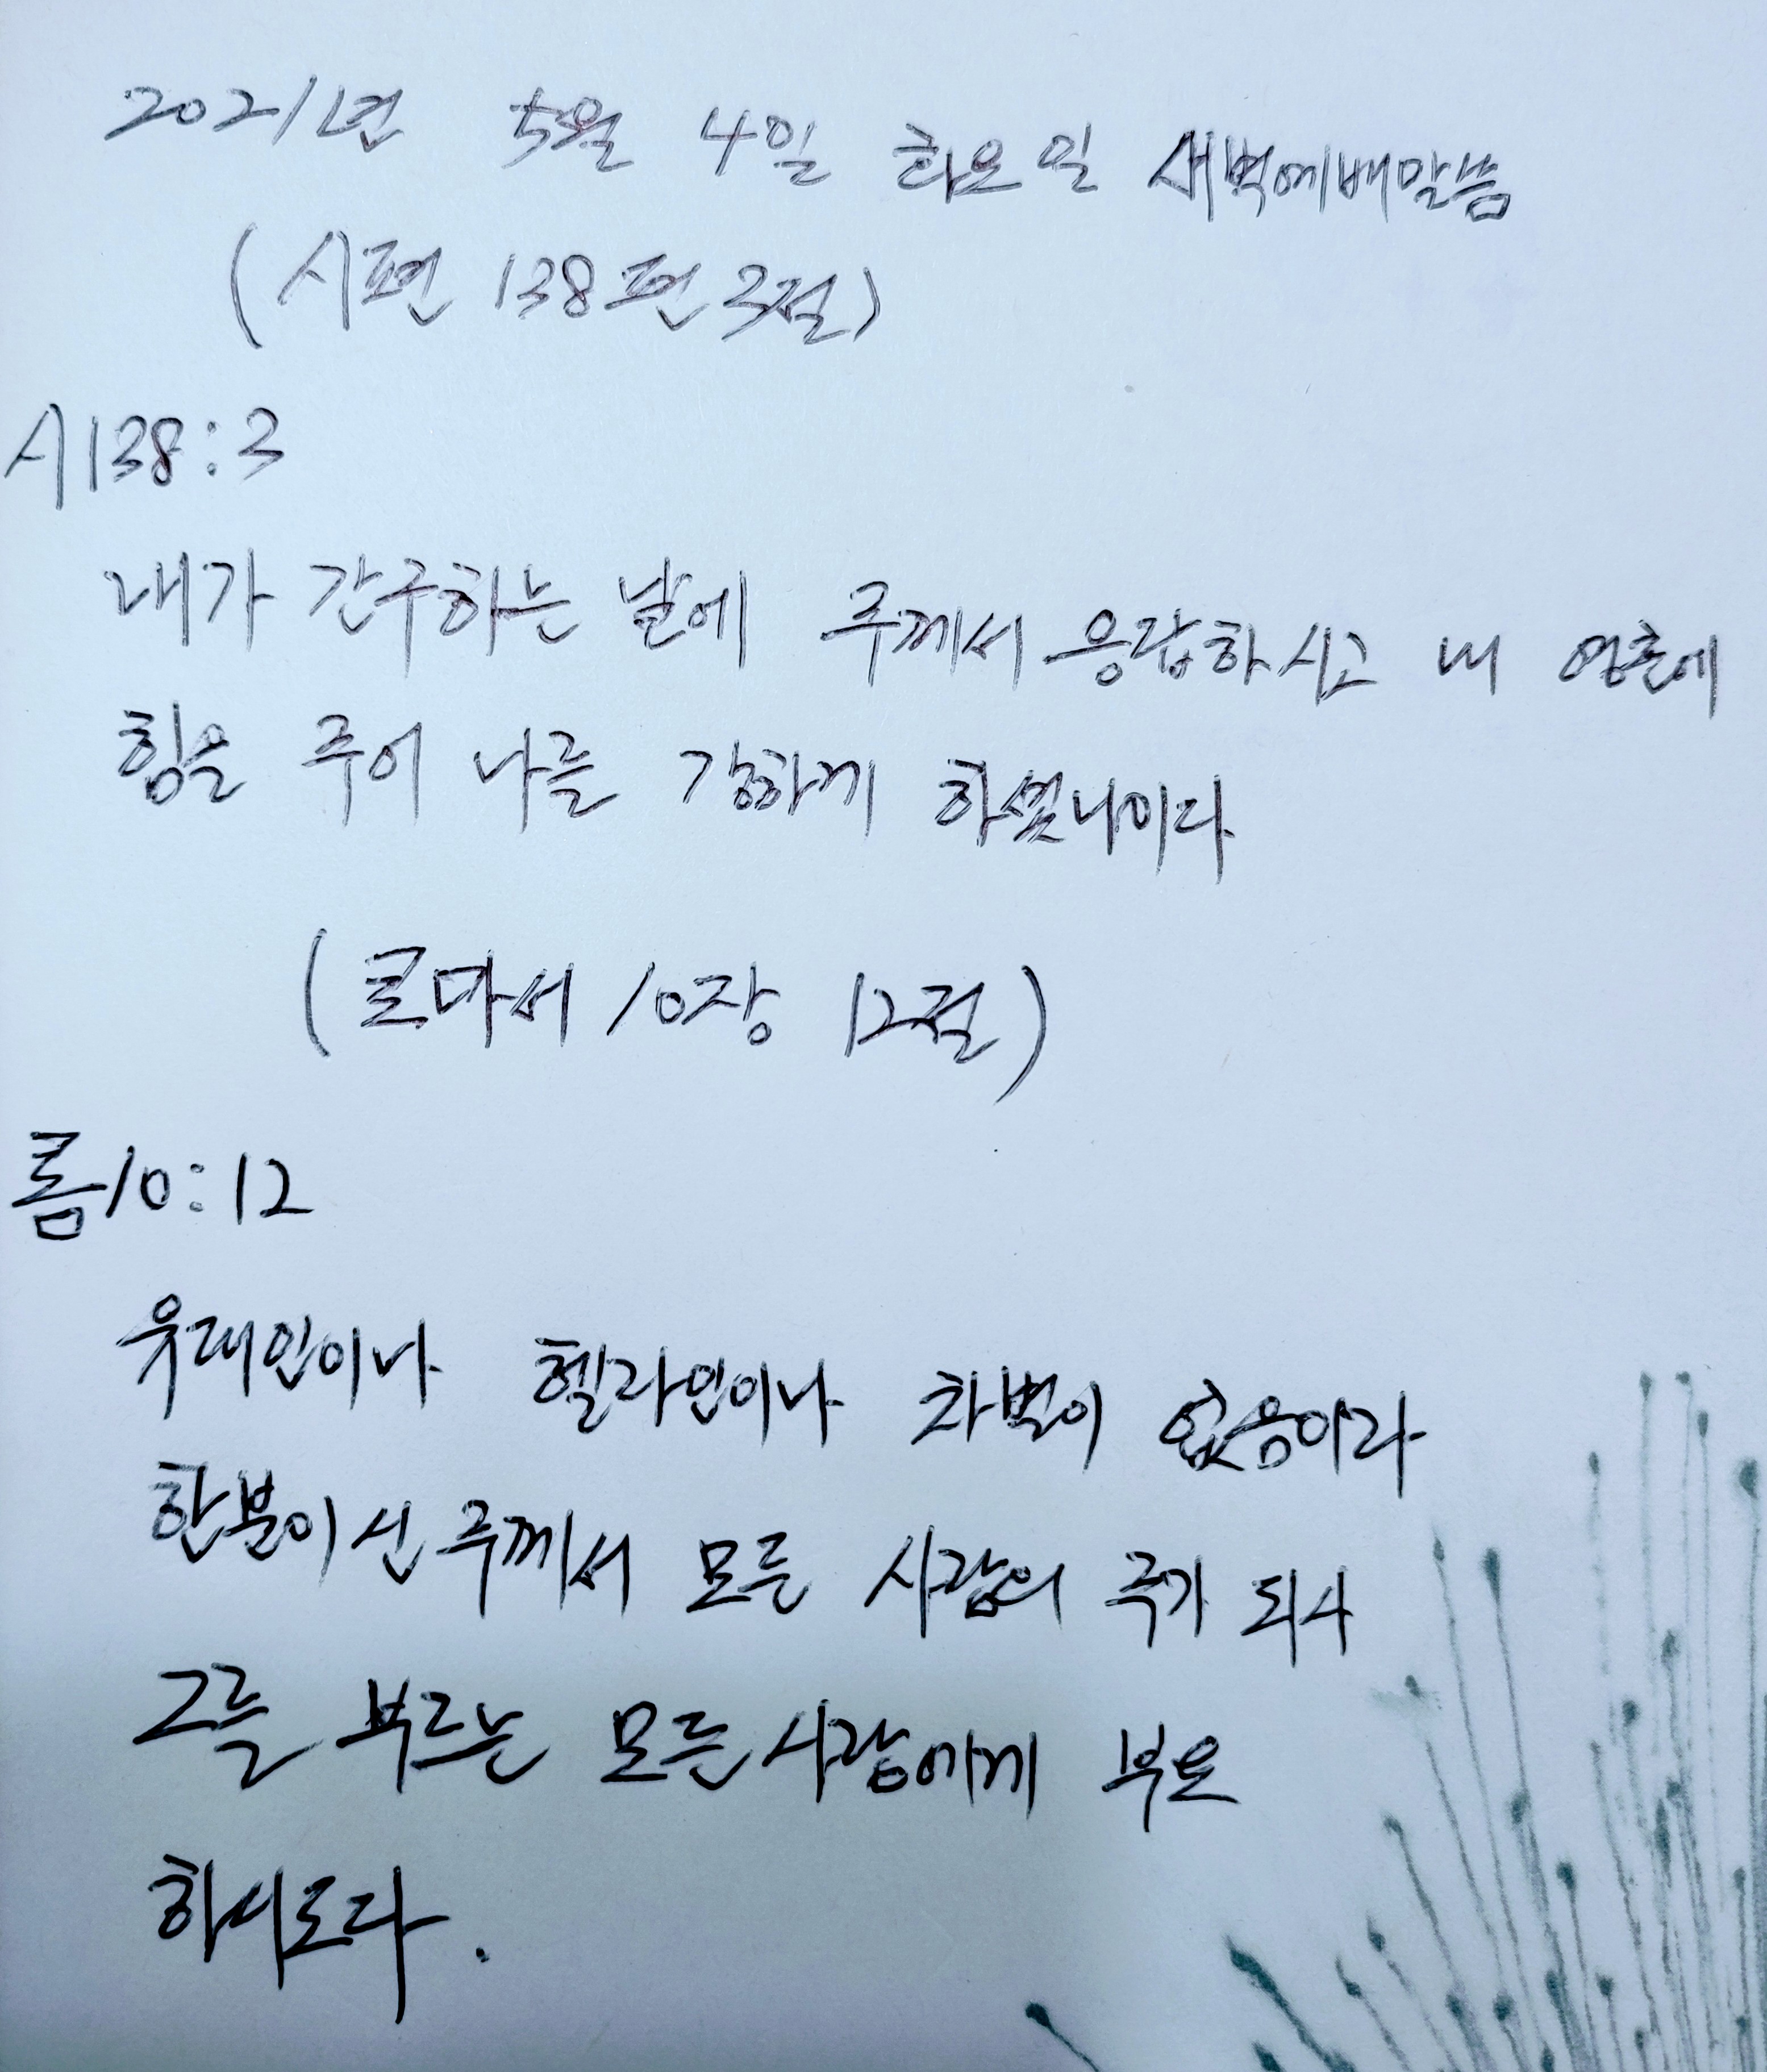 2021년 5월 4일 화요일 새벽예배말씀
(시편 138편 3절)
시138:3
내가 간구하는 날에 주께서 응답하시고 내 영혼에
힘을 주어 나를 강하게 하셨나이다
(로마서 10장 12절)
롬10:12
유대인이나 헬라인이나 차별이 없음이라
한분이신 주께서 모든 사람의 주가 되사
그를 부르는 모든 사람에게 부요
하시도다.